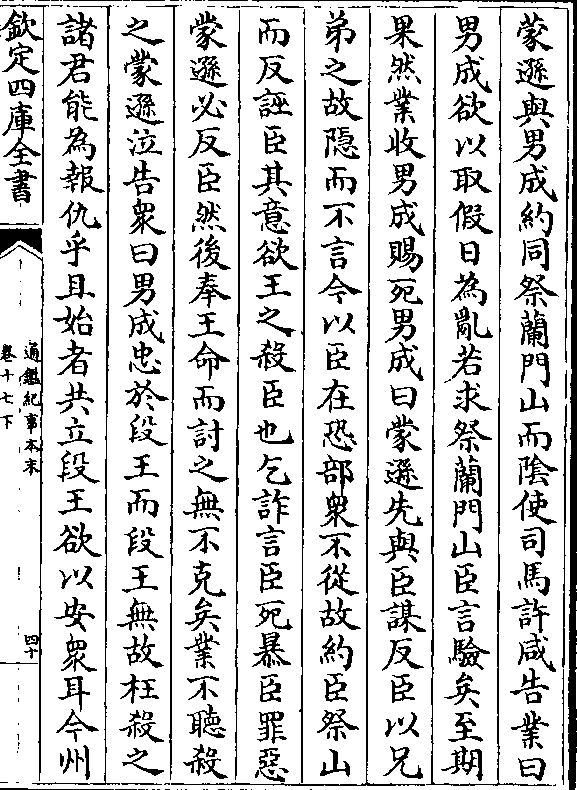 蒙遜與男成約同祭蘭門山而陰使司馬許咸告業曰
男成欲以取假日為亂若求祭蘭門山臣言驗矣至期
果然業收男成賜死男成曰蒙遜先與臣謀反臣以兄
弟之故隱而不言今以臣在恐部衆不從故約臣祭山
而反誣臣其意欲王之殺臣也乞詐言臣死暴臣罪惡
蒙遜必反臣然後奉王命而討之無不克矣業不聽殺
之蒙遜泣告衆曰男成忠於段王而段王無故枉殺之
諸君能為報仇乎且始者共立段王欲以安衆耳今州
欽定四庫全書
通鑑紀事本末
卷十七下
四十